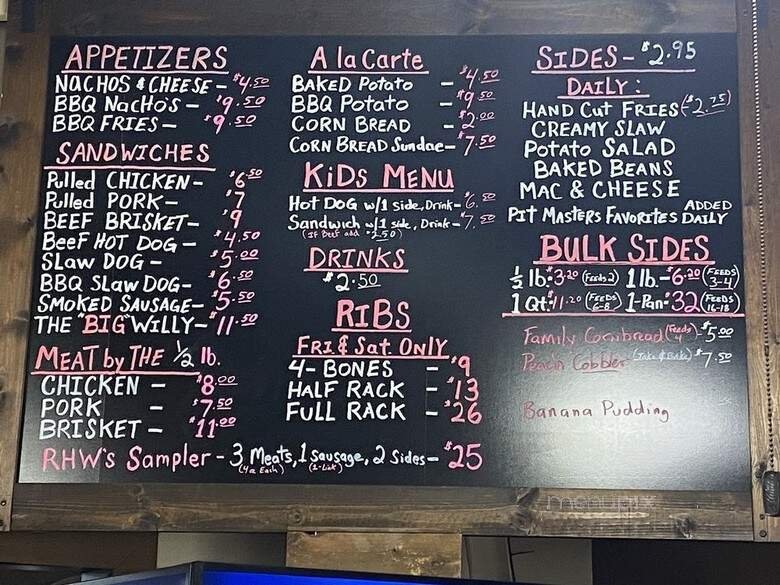 APPETIZERS
NACHOS & CHEESE - $4.50
BBQ NACHO'S - $9.50
BBQ FRIES - $9.50
SANDWICHES
Pulled CHICKEN - $6.50
Pulled PORK - $7
BEEF BRISKET - $9
BeeF HOT DOG - $4.50
SLAW DOG - $5.00
BBQ SLAW DOG - $6.50
SMOKED SAUSAGE - $5.50
THE "BIG" WILLY - $11.50
MEAT by THE 1/2 lb.
CHICKEN - $8.00
PORK - $7.50
BRISKET - $11.00
RHW's Sampler - 3 Meats, 1 Sausage, 2 Sides - $25
(4oz Each) (1-Link)
A la Carte
BAKED Potato - $4.50
BBQ Potato - $9.50
CORN BREAD - $2.00
CORN BREAD Sundae - $7.50
KiDs MENU
Hot DOG w/1 Side, Drink - $6.50
Sandwich w/1 side, Drink - $7.50
(If Beef add $2.50)
DRINKS
$2.50
RIBS
FRI & Sat. ONLY
4- BONES - $9
HALF RACK - $13
FULL RACK - $26
SIDES - $2.95
DAILY:
HAND Cut FRIES ($2.75)
CREAMY SLAW
Potato SALAD
BAKED BEANS
MAC & CHEESE
PIT MASTERS FAVORITES ADDED DAILY
BULK SIDES
1/2 lb. $3.20 (FEEDS 2) 1 lb. - $6.20 (FEEDS 3-4)
1 Qt. $11.20 (FEEDS 6-8) 1-Pan- $32 (FEEDS 16-18)
Family Cornbread (Feeds 4) - $5.00
Peach Cobbler (Take & Bake) $7.50
Banana Pudding
menupix